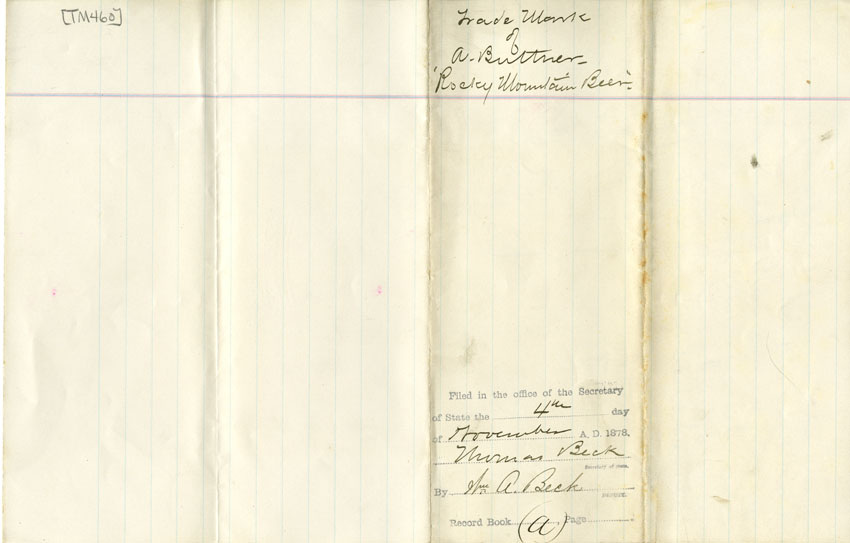 [TM460]
Trade Mark
of
A. Buttner
"Rocky Mountain Beer".
Filed in the office of the Secretary
of State the 4th day
of November A. D. 1878.
Thomas Beck
Secretary of State.
By Wm A. Beck
DEPUTY.
Record Book (A) Page